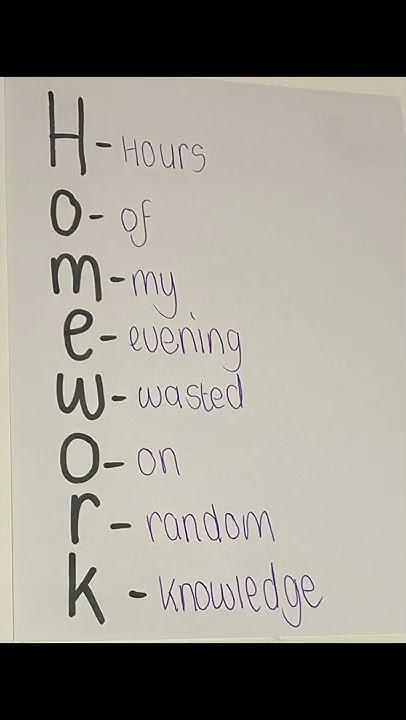 H - Hours
o - of
m - my
e - evening
w - wasted
o - on
r - random
k - knowledge